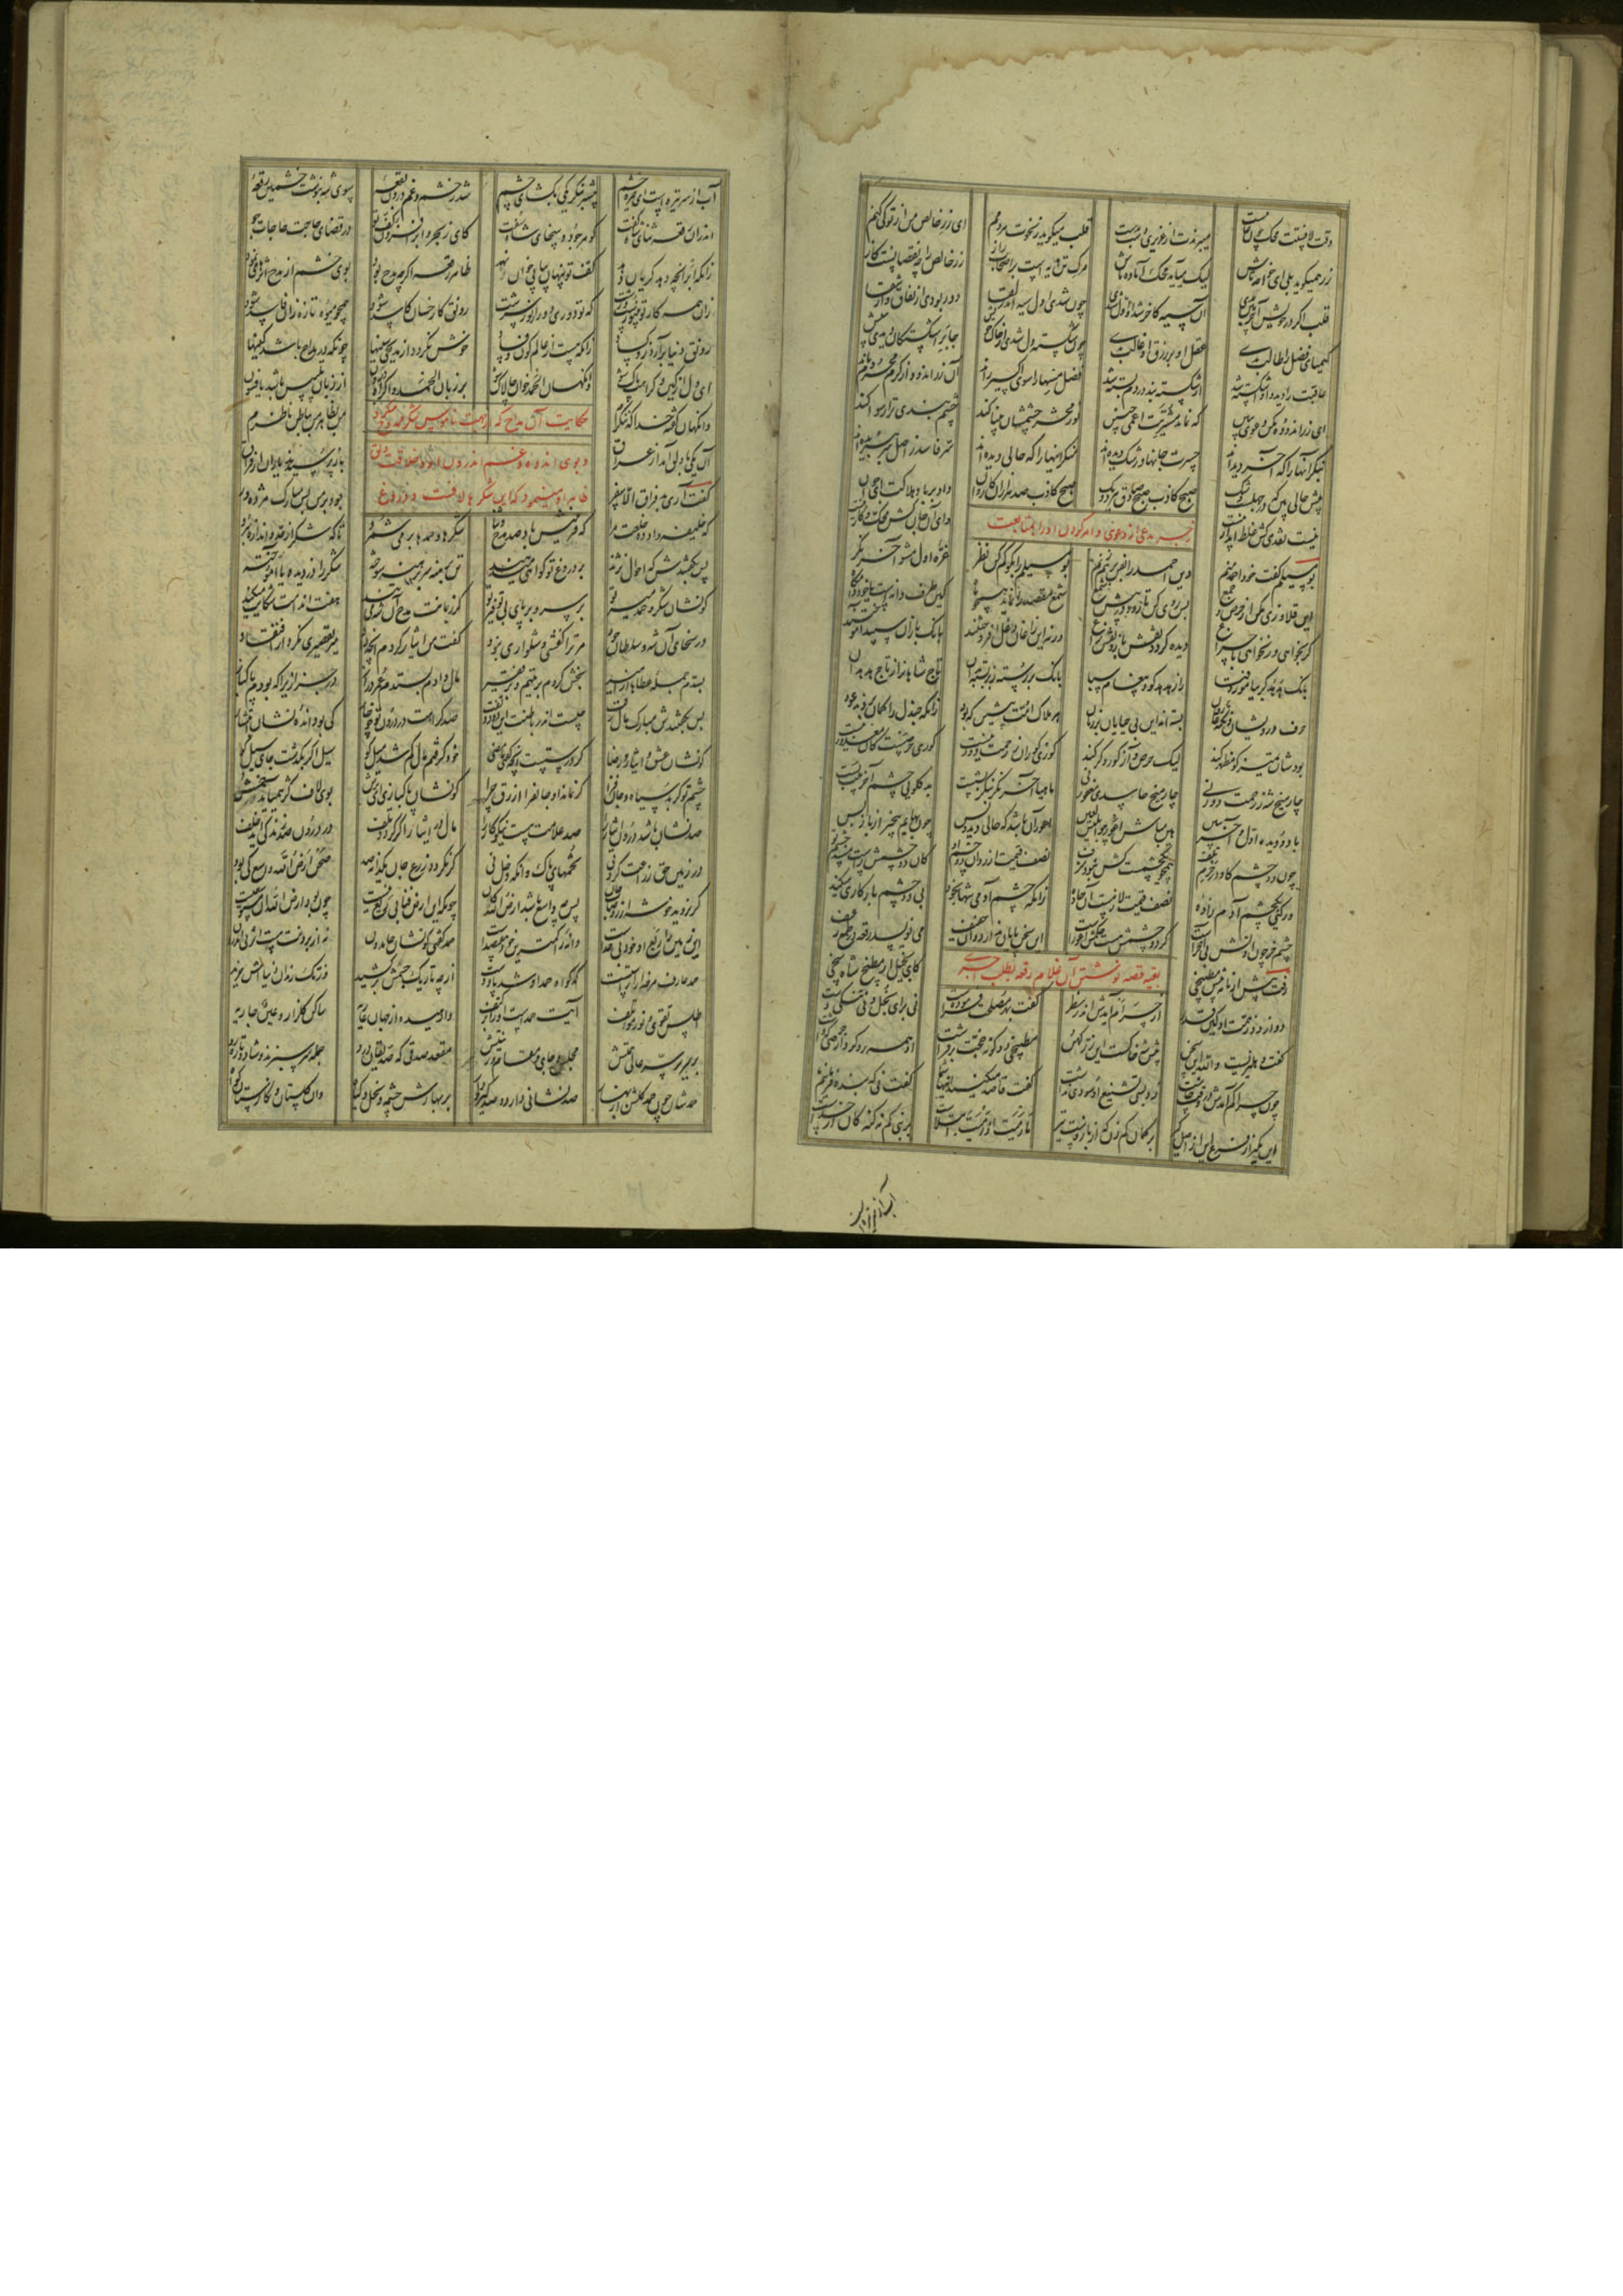 وقت لافستت محک چون غایبست میبرندت از عزیزی دست دست قلب میگوید ز نخوت هر دمم ای زر خالص من از تو کی کمم
زر همیگوید بلی ای خواجه تاش لیک می آید محک آماده باش مرگ تن هدیه است بر اصحاب راز زر خالص را چه نقصانست گاز
قلب اگر در خویش آخربین بدی آن سیه کاخر شد او اول شدی چون شدی اول سیه اندر لقا دور بودی از نفاق و از شقا
کیمیای فضل را طالب بدی عقل او بر زرق او غالب بدی چون شکسته دل شدی از حال خویش جابر اشکستگان دیدی به پیش
عاقبت را دید و او اشکسته شد از شکسته بند در دم بسته شد فضل مسها را سوی اکسیر راند آن زراندود از کرم محروم ماند
ای زراندوده مکن دعوی ببین که نماند مشتریت اعمی چنین نور محشر چشمشان بینا کند چشم بندی ترا رسوا کند
بنگر آنها را که آخر دیده اند حسرت جانها و رشک دیده اند بنگر آنها را که حالی دیده اند سر فاسد ز اصل سر ببریده اند
پیش حالی بین که در جهلست و شک صبح کاذب صبح صادق هر دو یک صبح کاذب صد هزاران کاروان داد بر باد هلاکت ای جوان
نیست نقدی کش غلط انداز نیست وای آن جان کش محک و گاز نیست
زجر مدعی از دعوی و امر کردن او را بمتابعت
بو مسیلم گفت خود احمد منم دین احمد را بفن برهم زنم بو مسیلم را بگو کم کن بطر غره اول مشو آخر نگر
این قلاوزی مکن از حرص جمع پس روی کن تا رود در پیش شمع شمع مقصد را نماید همچو ماه کین طرف دانه است یا خود دامگاه
گر بخواهی ور نخواهی با چراغ دیده گردد نقش باز و نقش زاغ ورنه این زاغان دغل افروختند بانگ بازان سپید آموختند
بانگ هدهد گر بیاموزد فتی راز هدهد کو و پیغام سبا بانگ بر رسته ز بر بسته بدان تاج شاهان را ز تاج هدهدان
حرف درویشان و نکته عارفان بسته اند این بی حیایان بر زبان هر هلاک امت پیشین که بود زانکه چندل را گمان بردند عود
بودشان تمییز کو مظهر کند لیک حرص و آز کور و کر کند کوری کوران ز رحمت دور نیست کوری حرصست کان معذور نیست
چارمیخ شه ز رحمت دور نی چارمیخ حاسدی مغفور نی ماهیا آخر نگر منگر بشست بد گلویی چشم آخربینت بست
با دو دیده اول و آخر ببین هین مباش اعور چو ابلیس لعین اعور آن باشد که حالی دید و بس چون بهایم بیخبر از باز پس
چون دو چشم گاو در جرم تلف همچو یک چشمست کش نبود شرف نصف قیمت ارزد آن دو چشم او کان دو چشمش راست مسند چشم تو
ور کنی یک چشم آدم زاده نصف قیمت لازمست از جاده زانکه چشم آدمی تنها بخود بی دو چشم یار کاری میکند
چشم خر چون اولش بی آخرست گر دو چشمش هست حکمش اعورست این سخن پایان ندارد وان خفیف می نویسد رقعه در طمع رغیف
رفت پیش از نامه پیش مطبخی کای بخیل از مطبخ شاه سخی
بقیه قصه نوشتن آن غلام رقعه بطلب اجری
دور ازو وز همت او کین قدر از جری ام آیدش اندر نظر گفت بهر مصلحت فرموده است نی برای بخل و نی تنگی دست
گفت دهلیزیست والله این سخن پیش شه خاکست این زر کهن مطبخی ده گونه حجت بر فراشت او همه رد کرد از حرصی که داشت
چون جری کم آمدش در وقت چاشت زد بسی تشنیع او سودی نداشت گفت قاصد میکنید اینها شما گفت نی که بنده فرمانیم ما
این مگیر از فرع این از اصل گیر بر کمان کم زن که از بازوست تیر ما رمیت اذ رمیت ابتلاست بر نبی کم نه گنه کان از خداست
آب از سر
آب از سر تیره است ای خیره خشم پیشتر بنگر یکی بگشای چشم شد ز خشم و غم درون بقعه سوی شه بنوشت خشمین رقعه
اندران رقعه ثنای شاه گفت گوهر جود و سخای شاه سفت کای ز بحر و ابر افزون کف تو در قضای حاجت حاجات جو
زانکه ابر آنچه دهد گریان دهد کف تو خندان پیاپی خوان نهد ظاهر رقعه اگر چه مدح بود بوی خشم از مدح اثرها مینمود
زان همه کار تو بی نورست و زشت که تو دوری دور از نور سرشت رونق کار خسان کاسد شود همچو میوه تازه زو فاسد شود
رونق دنیا برآرد زو کساد زانکه هست از عالم کون و فساد خوش نگردد از مدیحی سینها چونکه در مداح باشد کینها
ای دل از کین و کراهت پاک شو وانگهان الحمد خوان چالاک شو بر زبان الحمد و اکراه درون از زبان تلبیس باشد یا فسون
وانگهان گفته خدا که ننگرم من بظاهر من بباطن ناظرم
حکایت آن مداح که از جهت ناموس شکر ممدوح میکرد
و بوی اندوه و غم اندرون او و خلاقت دلق
ظاهر او مینمود که این شکرها لافست و دروغ
آن یکی با دلق آمد از عراق باز پرسیدند یاران از فراق
گفت آری بد فراق الا سفر بود بر من بس مبارک مژده ور
که خلیفه داد ده خلعت مرا که قرینش باد صد مدح و ثنا شکرها و حمدها بر می شمرد تا که شکر از حد و اندازه ببرد
پس بگفتندش که احوال نژند بر دروغ تو گواهی میدهند تن برهنه سر برهنه سوخته شکر را دزدیده یا آموخته
کو نشان شکر و حمد میر تو بر سر و بر پای بی توفیر تو گر زبانت مدح آن شه می تند هفت اندامت شکایت میکند
در سخای آن شه و سلطان جود مر ترا کفشی و شلواری نبود گفت من ایثار کردم آنچه داد میر تقصیری نکرد از افتقاد
بستدم جمله عطاها از امیر بخش کردم بر یتیم و بر فقیر مال دادم بستدم عمر دراز در جزا زیرا که بودم پاکباز
پس بگفتندش مبارک مال رفت چیست اندر باطنت این دود و تفت صد کراهت در درون تو چو خار کی بود انده نشان ابتشار
کو نشان عشق و ایثار و رضا گر درستست آنچه گفتی ما مضی خود گرفتم مال گم شد میل کو سیل اگر بگذشت جای سیل کو
چشم تو گر بد سیاه و جان فزا گر نماند او جانفزا ازرق چرا کو نشان پاکبازی ای ترش بوی لاف کژ همی آید خمش
صد نشان باشد درون ایثار را صد علامت هست نیکوکار را مال در ایثار اگر گردد تلف در درون صد زندگی آید خلف
در زمین حق زراعت کردنی تخمهای پاک وانگه دخل نی گر نگردد زرع جان یک دانه صد صحن ارض الله واسع کی بود
گر نروید خوشه از روضات هو پس چه واسع باشد ارض الله گو چونکه این ارض فنا بی ریع نیست چون بود ارض الله آن مستوسعیست
این زمین را ریع او خود بی حدست دانه را کمترین خود هفصدست حمد گفتی کو نشان حامدون نه از برونت هست اثر نه اندرون
حمد عارف مر خدا را راستست که گواه حمد او شد پا و دست از چه تاریک جسمش بر کشید وز تک زندان دنیااش خرید
اطلس تقوی و نور مؤتلف آیت حمدست او را بر کتف وارهیده از جهان عاریه ساکن گلزار و عین جاریه
بر سریر سر عالی همتش مجلس و جای و مقام و رتبتش مقعد صدقی که صدیقان درو جمله سر سبزند و شاد و تازه رو
حمدشان چون حمد گلشن از بهار صد نشانی دارد و صد گیر و دار بر بهارش چشمه و نخل و گیاه وان گلستان و نگارستان گواه